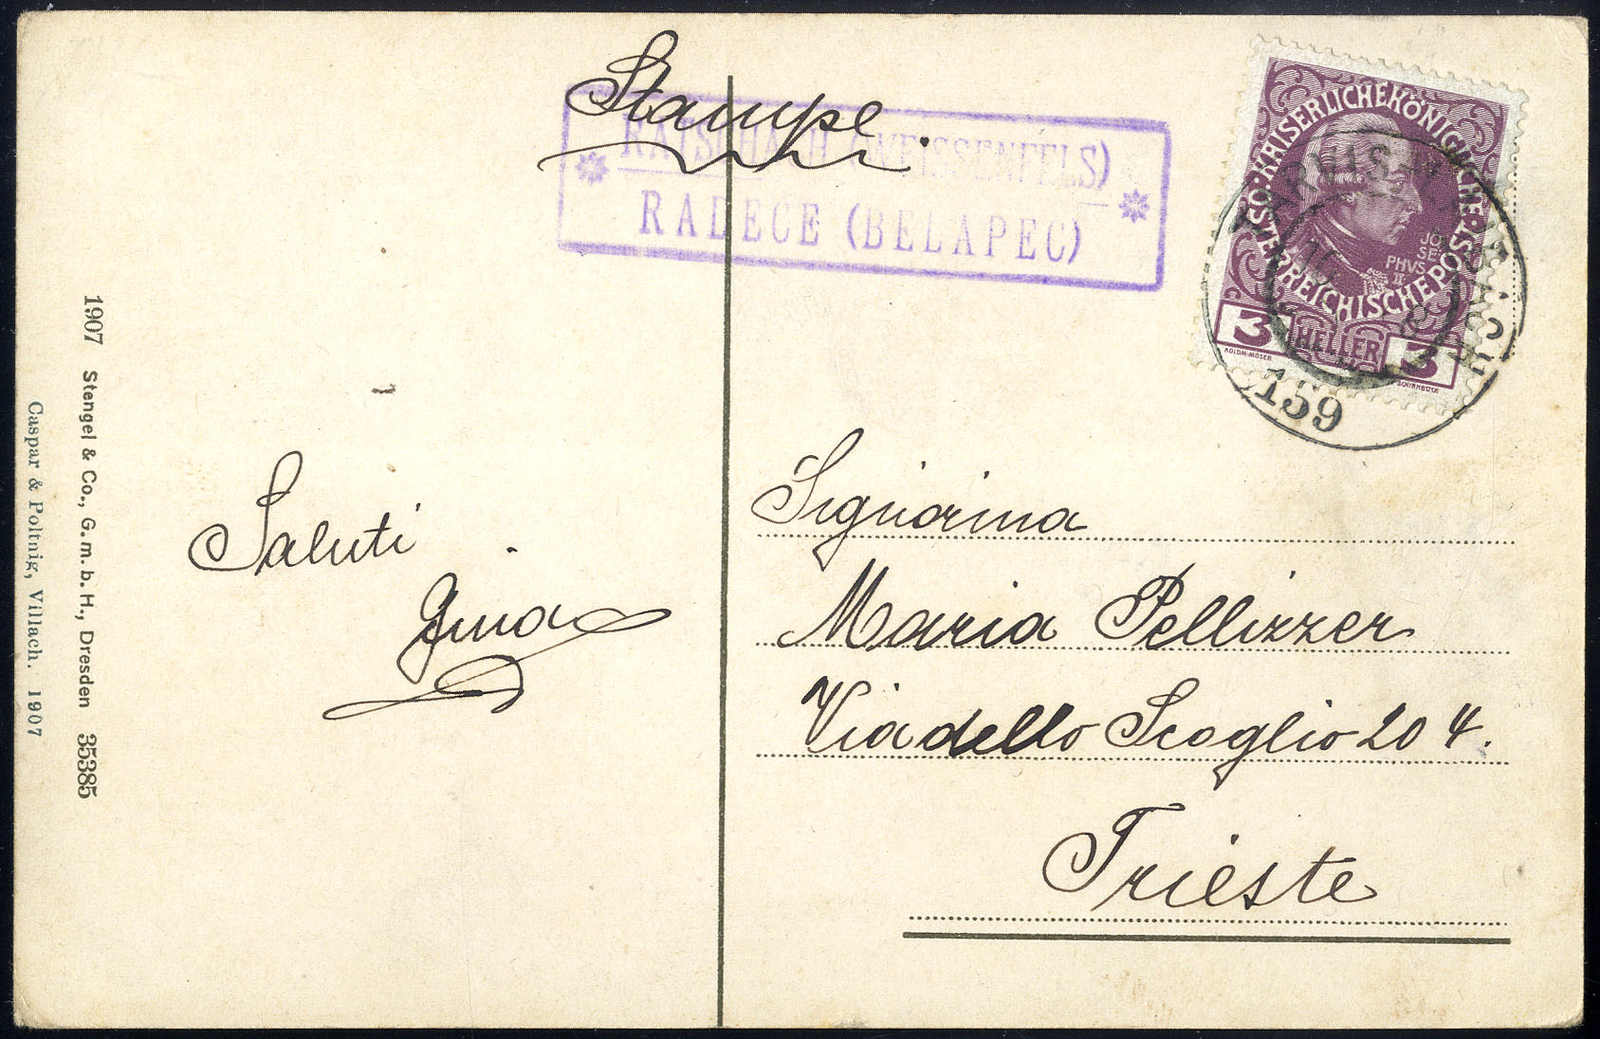 Stampe
RATSCHACH (WEISSENFELS)
RADECE (BELAPEC)
KAISERLICHE KÖNIGLICHE
ÖSTERREICHISCHE POST
JO
SE
PHVS
II
3 HELLER 3
KOLOM·MOSER
TARVIS
159
Saluti
Gina
Signorina
Maria Pellizzer
Via dello Scoglio 20 4.
Trieste
1907 Stengel & Co., G. m. b. H., Dresden 35385
Caspar & Poltnig, Villach. 1907